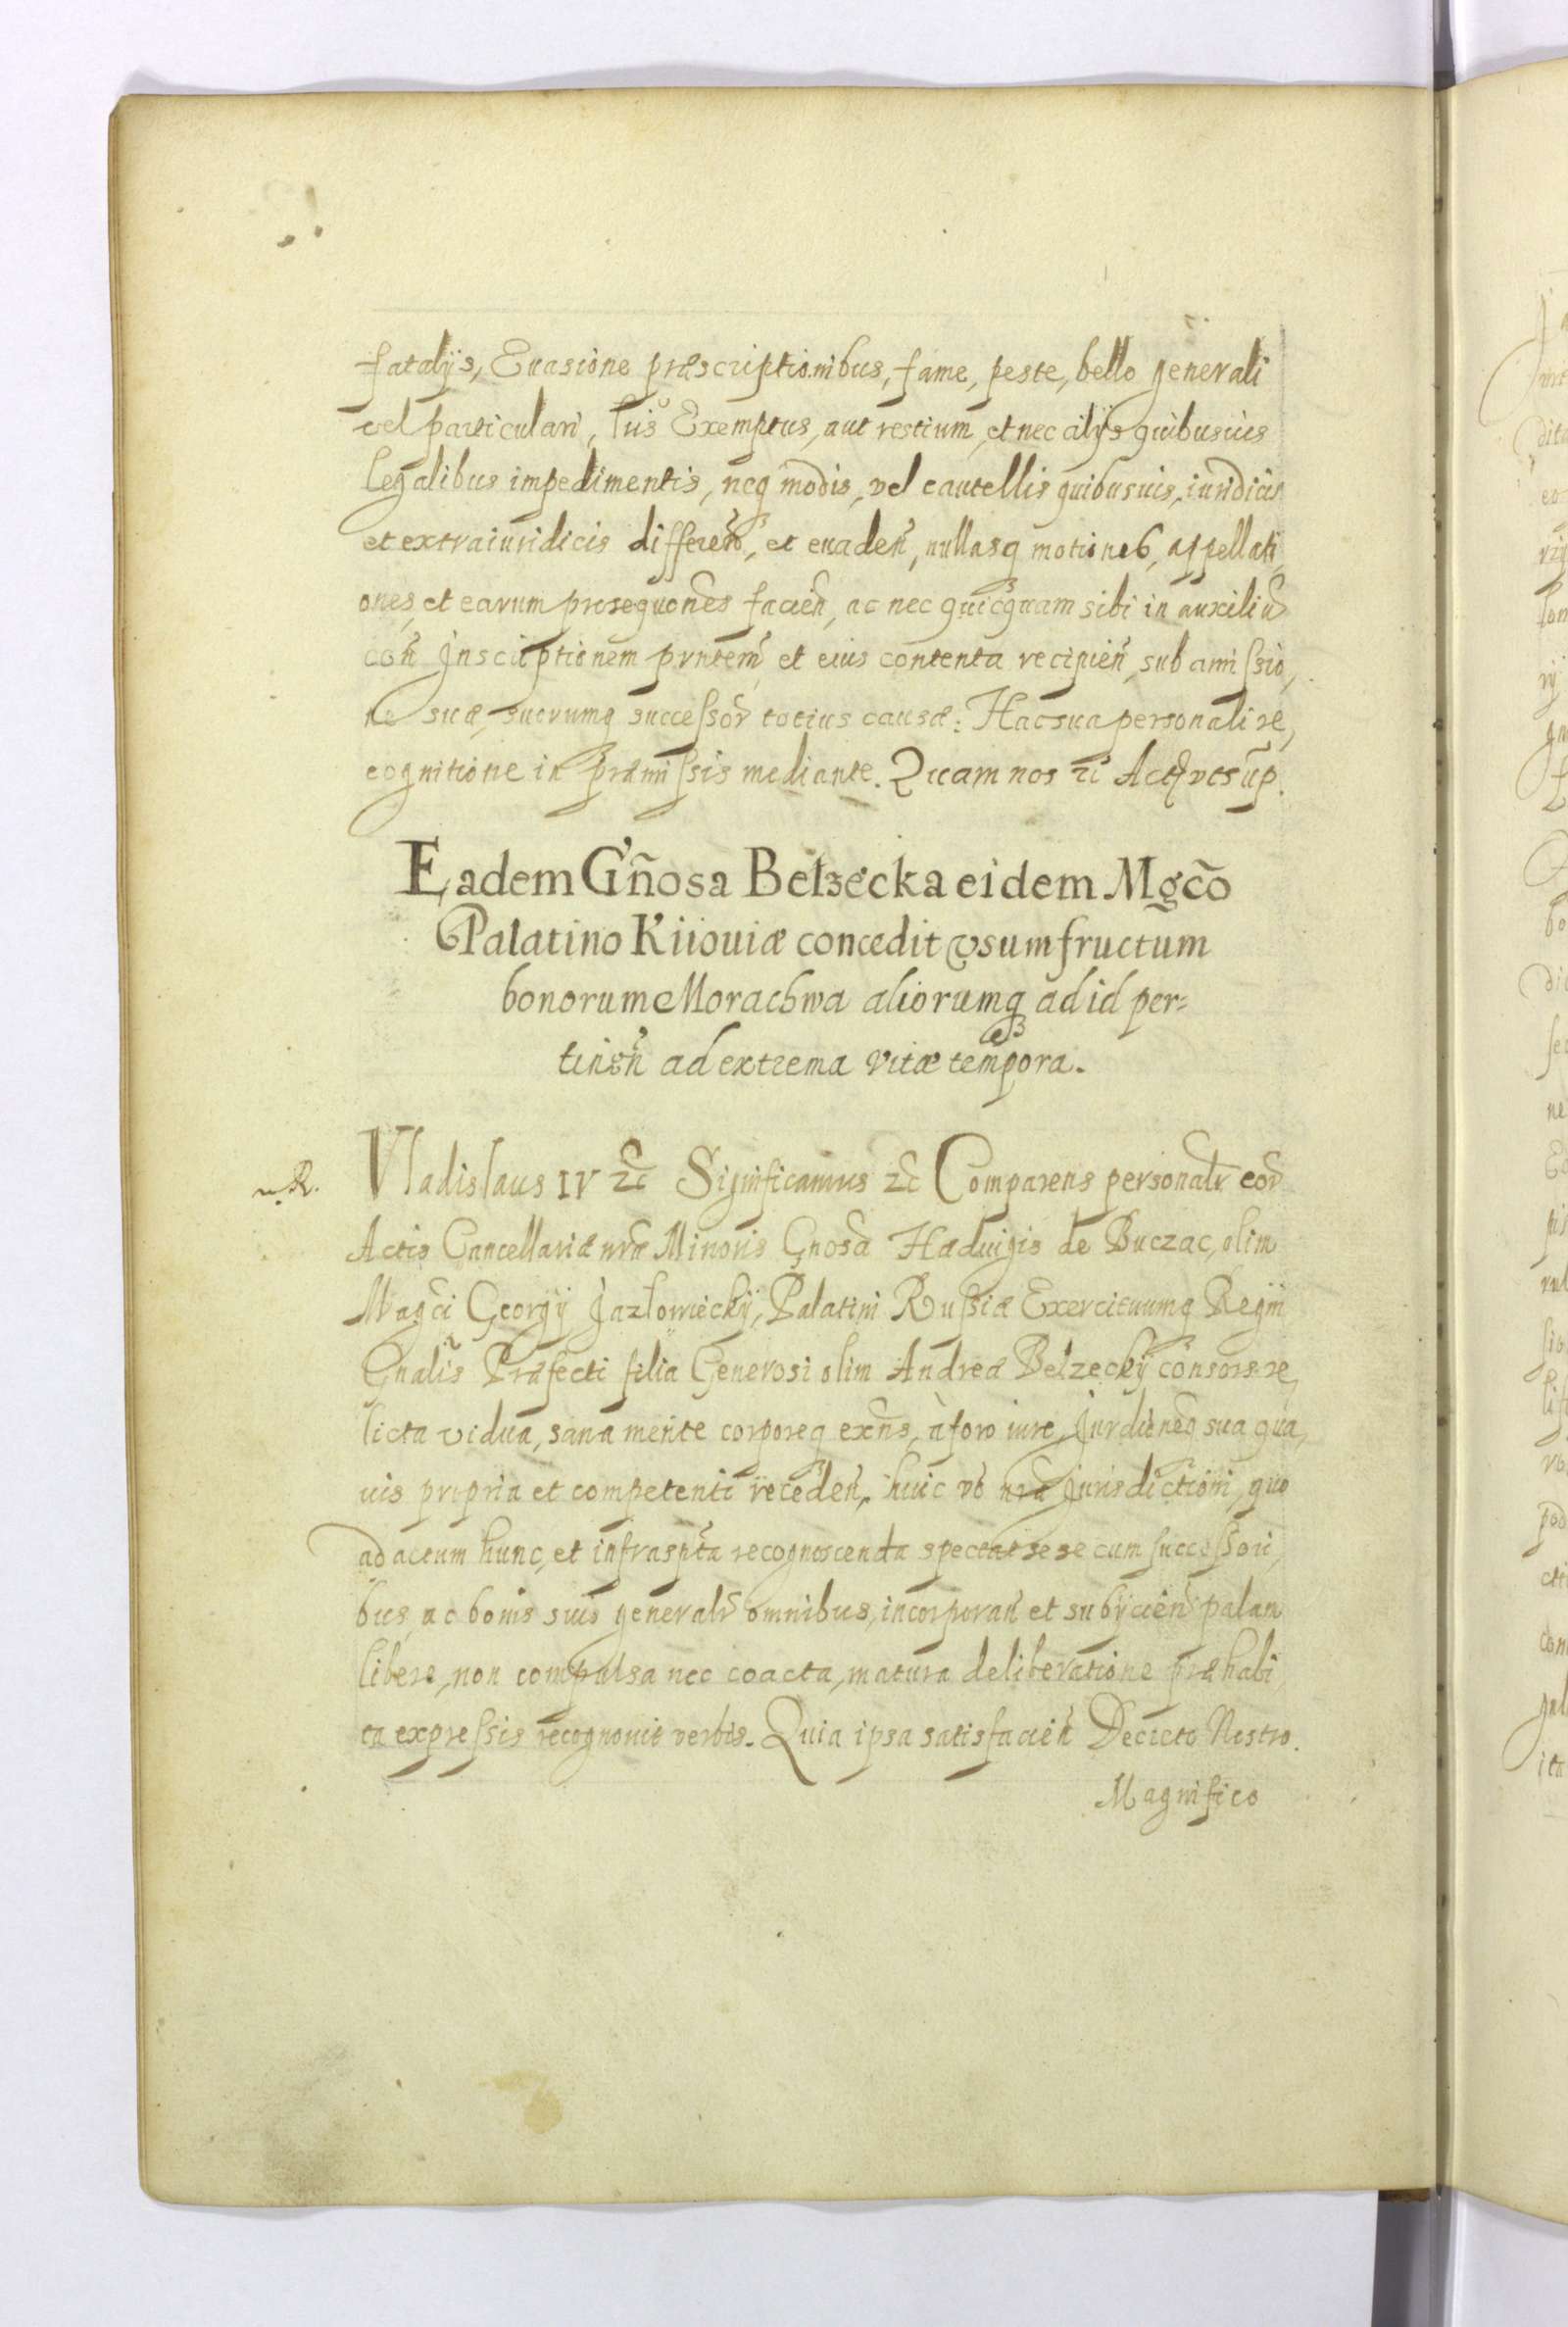 fatalijs, Euasione præscriptionibus, fame, peste, bello generali
vel particulari, lris Exemptus, aut restium, et nec alijs quibusuis
legalibus impedimentis, neq modis, vel cautellis quibusuis, iuridicis
et extraiuridicis differeñ, et euadeñ, nullasq motiones, appellati,
ones, et earum prosequones facieñ, ac nec quicquam sibi in auxiliũ
coñ Inscriptionem prntem et eius contenta recipieñ, sub amissio,
ne suæ, suorumq successor totius causæ: Hac sua personali re,
cognitione in præmissis mediante. Quam nos &c Act vt sup.
Eadem Gñosa Belzecka eidem Mgcõ
Palatino Kiiouiæ concedit vsumfructum
bonorum Morachwa aliorumq ad id per=
tineñ ad extrema vitæ tempora.
Vladislaus IV &c Significamus &c Comparens personalr cor
Actis Cancellariæ nræ Minoris Gnosa Hæduigis de Buczac, olim
Magci Georgij Jazłowieckij, Palatini Russiæ Exercituumq Regni
Gnalis Præfecti filia Generosi olim Andreæ Belzeckij consors re,
licta vidua, sana mente corporeq exñs, à foro iure, Jurdicneq sua qua,
uis propria et competenti recedeñ, huic vo nræ Jurisdictioni, quo
ad actum hunc, et infraspta recognoscenda spectat sese cum successori,
bus, ac bonis suis generalr omnibus, incorporañ et subijcieñ palam
libere, non compulsa nec coacta, matura deliberatione præhabi,
ta expressis recognouit verbis. Quia ipsa satisfacieñ Decreto Nostro.
Magnifico